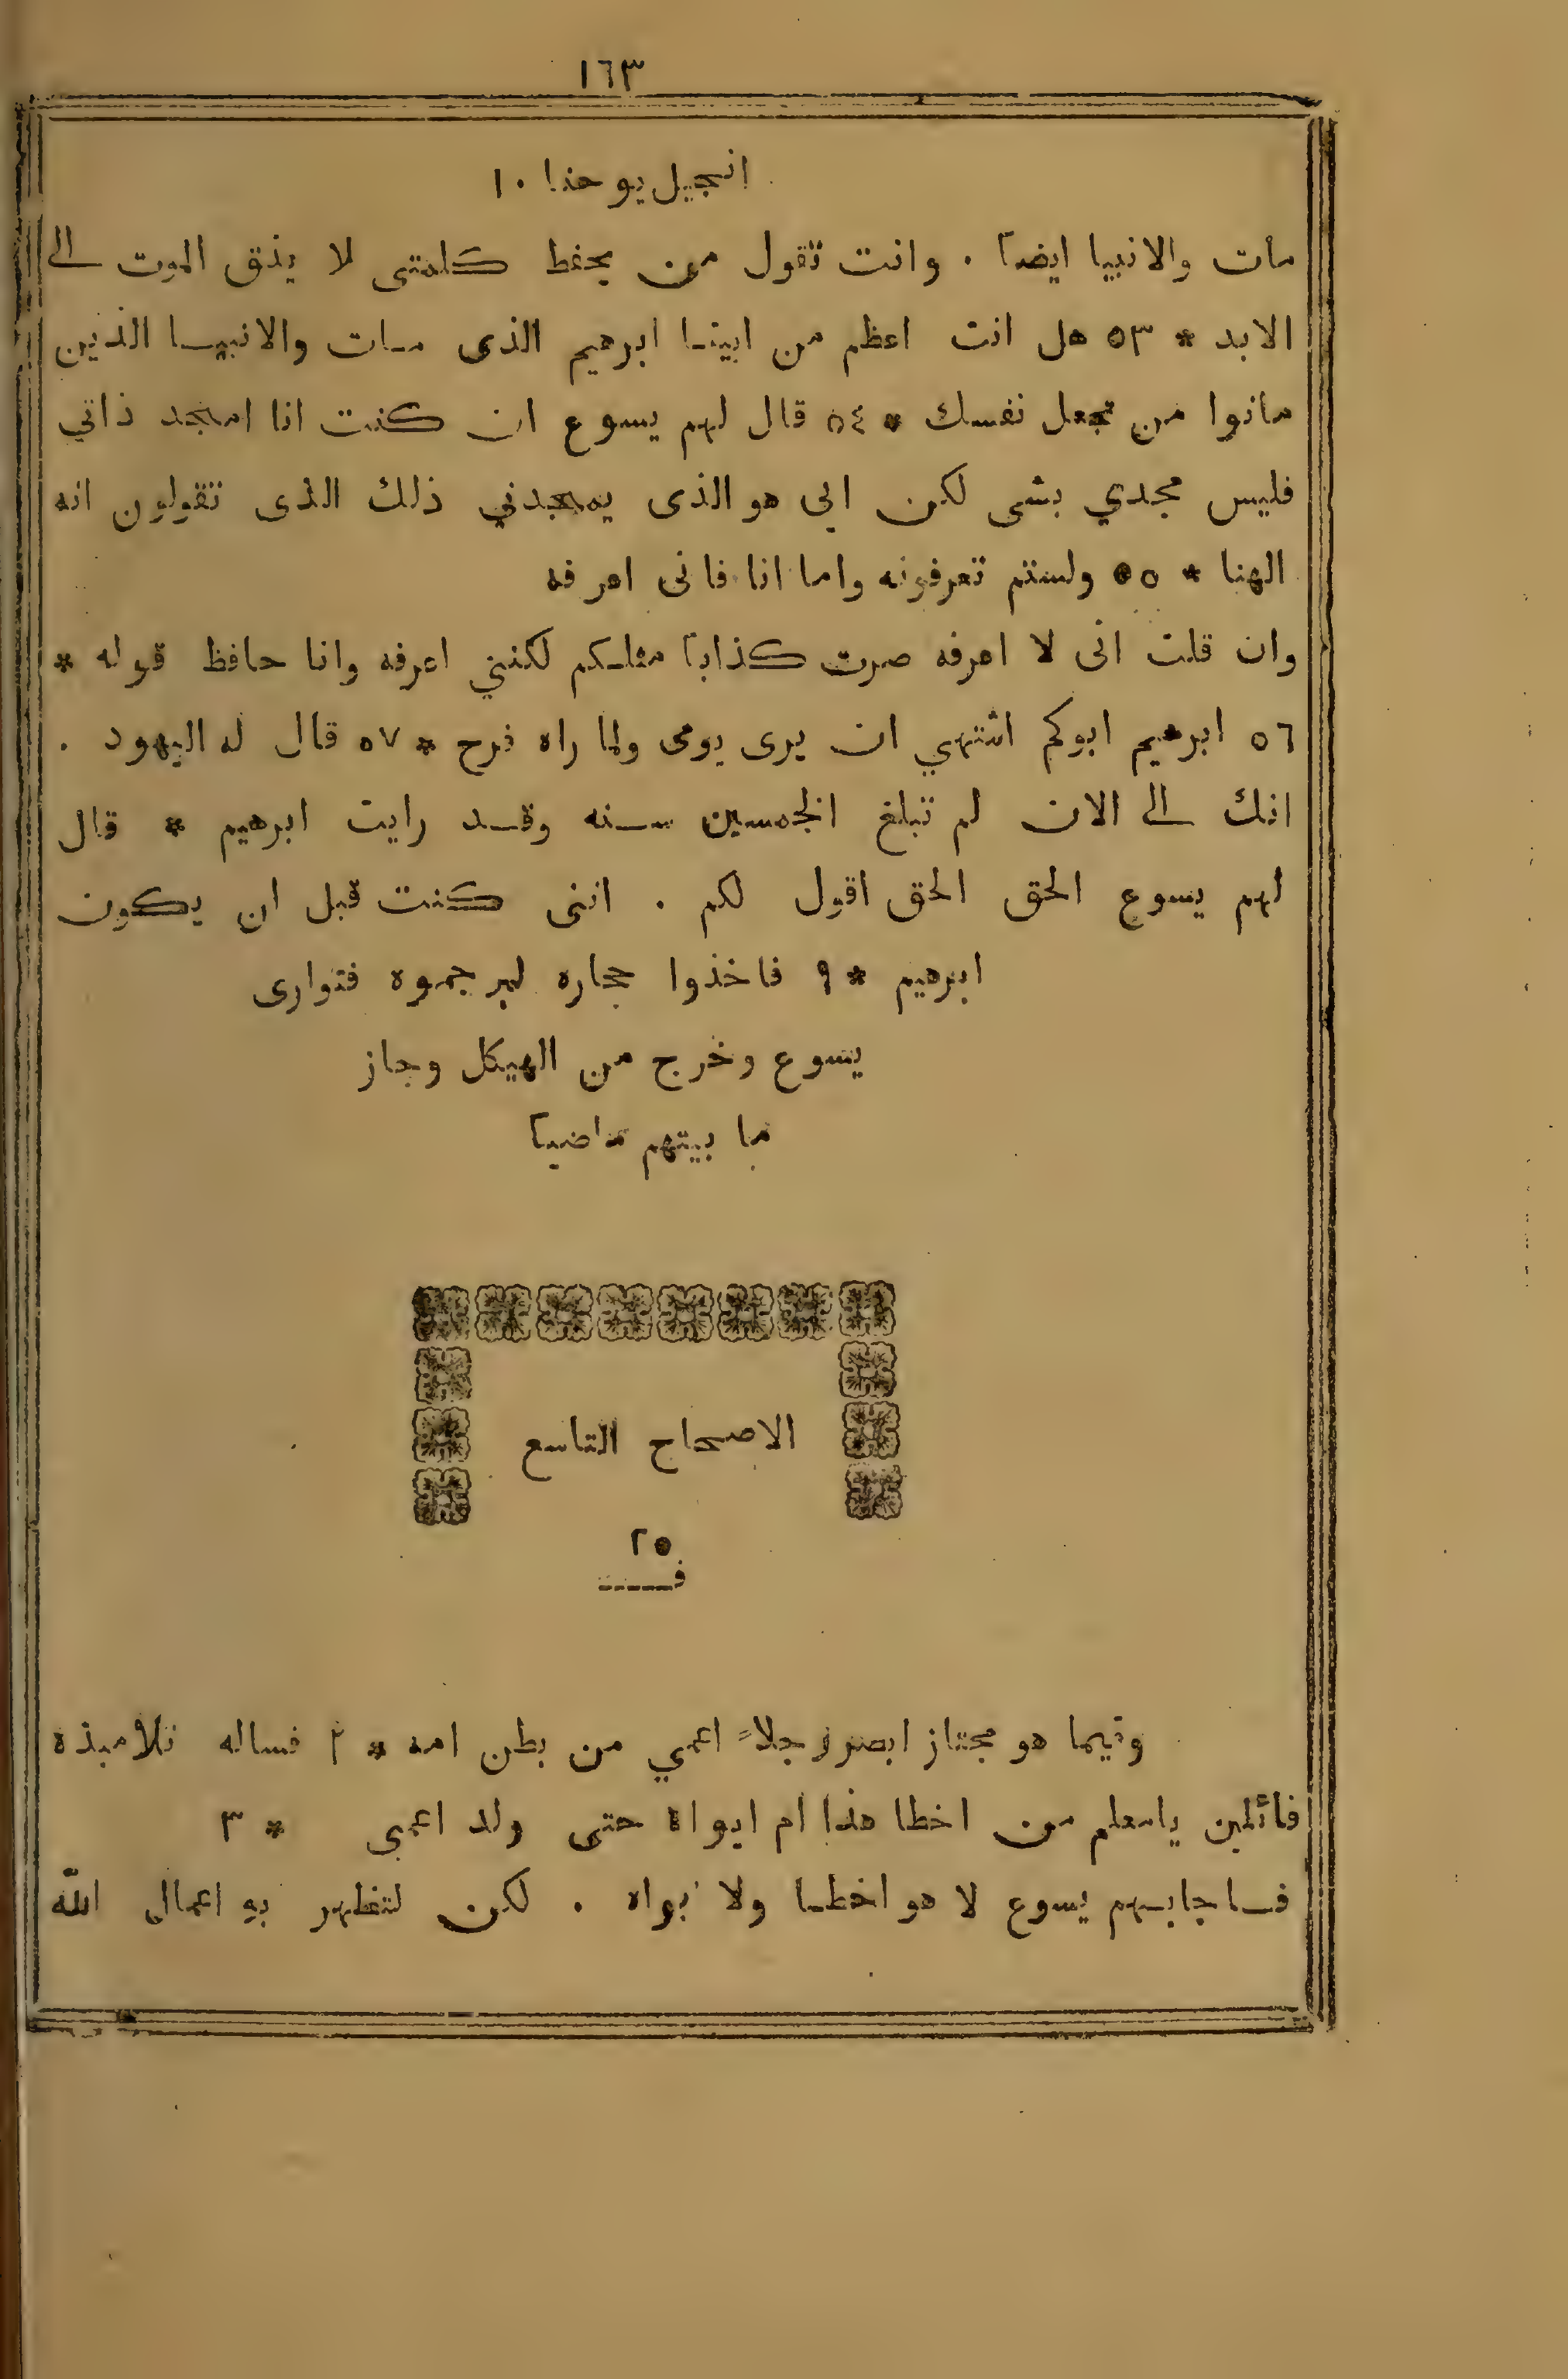 ١٦٣
انجيل يوحنا ١٠
مات والانبيا ايضاً . وانت تقول من يحفظ كلمتى لا يذق الموت الى
الابد * ٥٣ هل انت اعظم من ابينا ابرهيم الذى مات والانبيا الذين
ماتوا من تجعل نفسك * ٥٤ قال لهم يسوع ان كنت انا امجد ذاتي
فليس مجدي بشى لكن ابى هو الذى يمجدني ذلك الذى تقولون انه
الهنا * ٥٥ ولستم تعرفونه واما انا فانى اعرفه
وان قلت انى لا اعرفه صرت كذاباً مثلكم لكننى اعرفه وانا حافظ قوله *
٥٦ ابرهيم ابوكم اشتهي ان يرى يومى ولما راه فرح * ٥٧ قال له اليهود .
انك الى الان لم تبلغ الخمسين سنه وقد رايت ابرهيم * قال
لهم يسوع الحق الحق اقول لكم . اننى كنت قبل ان يكون
ابرهيم * ٩ فاخذوا حجاره ليرجموه فتوارى
يسوع وخرج من الهيكل وجاز
ما بيتهم ماضياً
الاصحاح التاسع
٢٥
فـ
وفيما هو مجتاز ابصر رجلاً اعمي من بطن امه * ٢ فساله تلاميذه
قائلين يامعلم من اخطا هذا ام ابواه حتى ولد اعمى * ٣
فاجابهم يسوع لا هو اخطا ولا ابواه . لكن لتظهر به اعمال الله